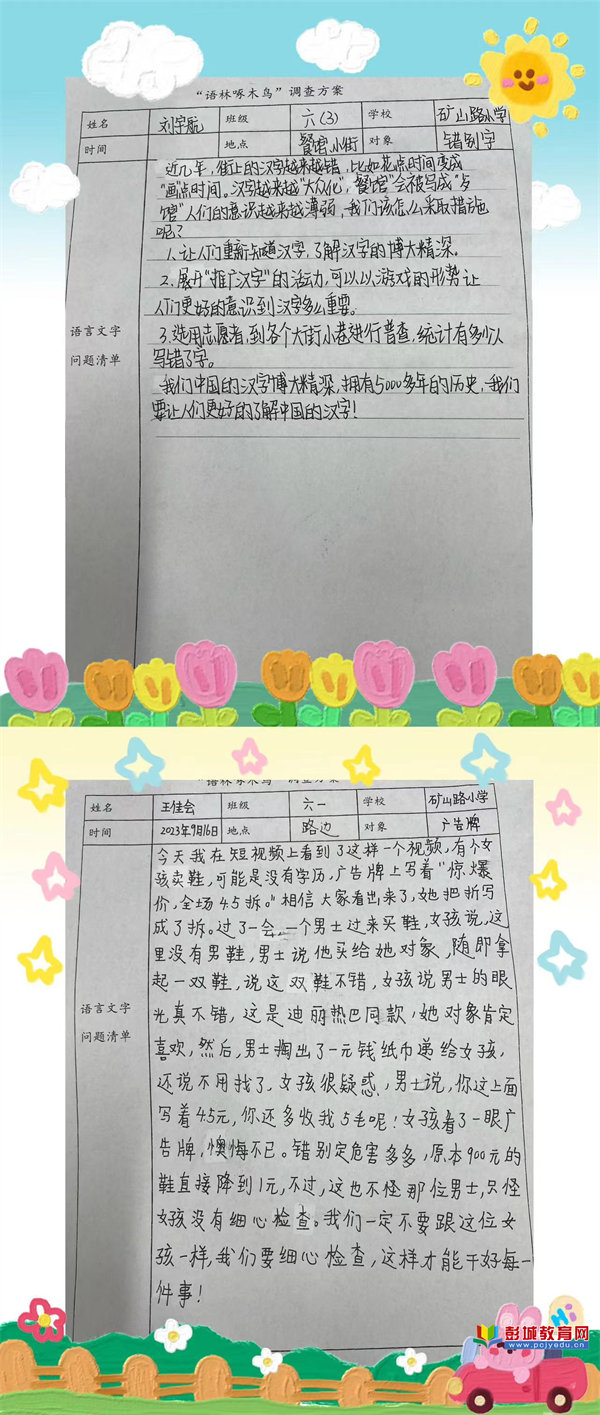 “语林啄木鸟”调查方案
姓名 刘宇航 班级 六(3) 学校 矿山路小学
时间 地点 餐馆.小街 对象 错别字
近几年,街上的汉字越来越错,比如花点时间变成
“画”点时间。汉字越来越“大众化”,餐馆”会被写成“歺
馆”人们的意识越来越薄弱,我们该怎么采取措施
呢?
1.让人们重新知道汉字,了解汉字的博大精深。
2.展开“推广汉字”的活动,可以以游戏的形势让
人们更好的意识到汉字多么重要。
3.选用志愿者,到各个大街小巷进行普查,统计有多少人
写错了字。
我们中国的汉字博大精深,拥有5000多年的历史,我们
要让人们更好的了解中国的汉字!
语言文字
问题清单
“语林啄木鸟”调查方案
姓名 王佳会 班级 六一 学校 矿山路小学
时间 2023年9月16日 地点 路边 对象 广告牌
今天我在短视频上看到了这样一个视频,有个女
孩卖鞋,可能是没有学历,广告牌上写着“惊爆
价,全场4.5拆。”相信大家看出来了,她把折写
成了拆。过了一会,一个男士过来买鞋,女孩说,这
里没有男鞋,男士说他买给她对象,随即拿
起一双鞋,说这双鞋不错,女孩说男士的眼
光真不错,这是迪丽热巴同款,她对象肯定
喜欢,然后,男士掏出了一元钱纸币递给女孩,
还说不用找了,女孩很疑惑,男士说,你这上面
写着4.5元,你还多收我5毛呢!女孩看了一眼广
告牌,懊悔不已。错别定危害多多,原本900元的
鞋直接降到1元,不过,这也不怪那位男士,只怪
女孩没有细心检查。我们一定不要跟这位女
孩一样,我们要细心检查,这样才能干好每一
件事!
语言文字
问题清单
Hi
彭城教育网
www.pcjyedu.cn